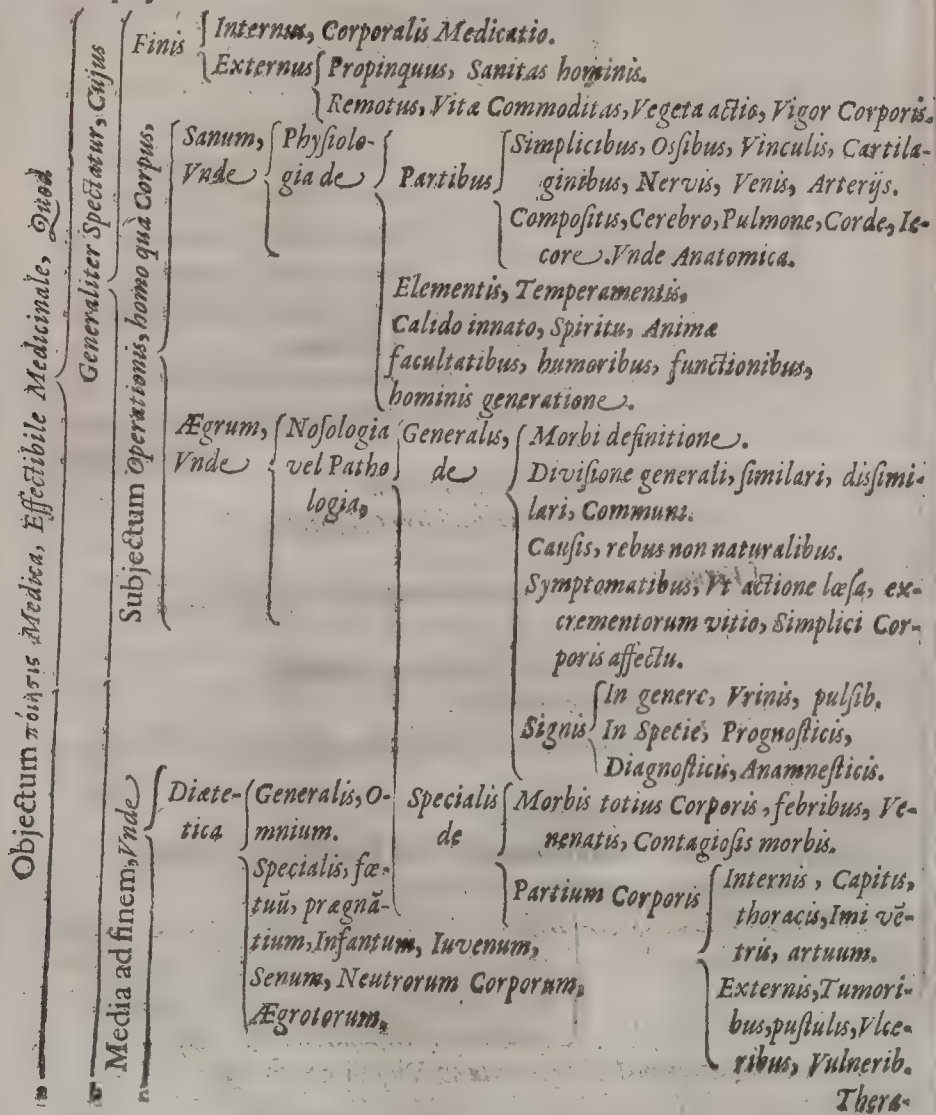 Objectum πόιησις Medica, Effectibile Medicinale, Quod
Generaliter Spectatur, Cujus
Finis
Internus, Corporalis Medicatio.
Externus
Propinquus, Sanitas hominis.
Remotus, Vitæ Commoditas, Vegeta actio, Vigor Corporis.
Subjectum Operationis, homo quà Corpus,
Sanum,
Vnde
Physiolo-
gia de
Partibus
Simplicibus, Ossibus, Vinculis, Cartila-
ginibus, Nervis, Venis, Arterijs.
Compositis, Cerebro, Pulmone, Corde, Ie-
core. Vnde Anatomica.
Elementis, Temperamentis,
Calido innato, Spiritu, Animæ
facultatibus, humoribus, functionibus,
hominis generatione.
Ægrum,
Vnde
Nosologia
vel Patho
logia,
Generalis,
de
Morbi definitione.
Divisione generali, similari, dissimi-
lari, Communi.
Causis, rebus non naturalibus.
Symptomatibus, Vt actione læsa, ex-
crementorum vitio, Simplici Cor-
poris affectu.
Signis
In genere, Vrinis, pulsib.
In Specie, Prognosticis,
Diagnosticis, Anamnesticis.
Specialis
de
Morbis totius Corporis, febribus, Ve-
nenatis, Contagiosis morbis.
Partium Corporis
Internis, Capitis,
thoracis, Imi vẽ-
tris, artuum.
Externis, Tumori-
bus, pustulis, Vlce-
ribus, Vulnerib.
Media ad finem, Vnde
Diæte-
tica
Generalis, O-
mnium.
Specialis, fœ-
tuũ, prægnã-
tium, Infantum, Iuvenum,
Senum, Neutrorum Corporum,
Ægrotorum,
Thera-